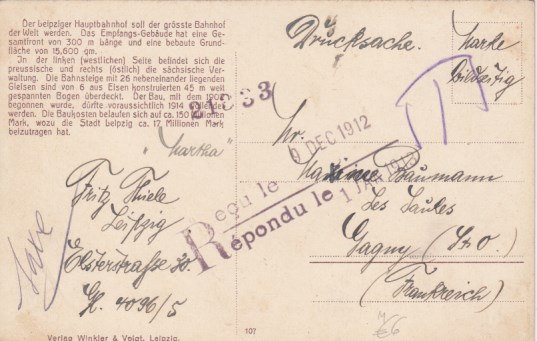 Der Leipziger Hauptbahnhof soll der grösste Bahnhof
der Welt werden. Das Empfangs-Gebäude hat eine Ge-
samtfront von 300 m Länge und eine bebaute Grund-
fläche von 15.600 qm.
In der linken (westlichen) Seite befindet sich die
preussische und rechts (östlich) die sächsische Ver-
waltung. Die Bahnsteige mit 26 nebeneinander liegenden
Gleisen sind von 6 aus Eisen konstruierten 45 m weit
gespannten Bogen überdeckt. Der Bau, mit dem 1902
begonnen wurde, dürfte voraussichtlich 1914 beendet
werden. Die Baukosten belaufen sich auf ca. 150 Millionen
Mark, wozu die Stadt Leipzig ca. 17 Millionen Mark
beizutragen hat.
"Martha"
Fritz Thiele
Leipzig
Elsterstraße
4096/5
Verlag Winkler & Voigt, Leipzig.
107
Drucksache.
Marke
DEC 1912
Reçu le
Répondu le
Baumann
Les Saules
Gagny (S. & O.)
(Frankreich)